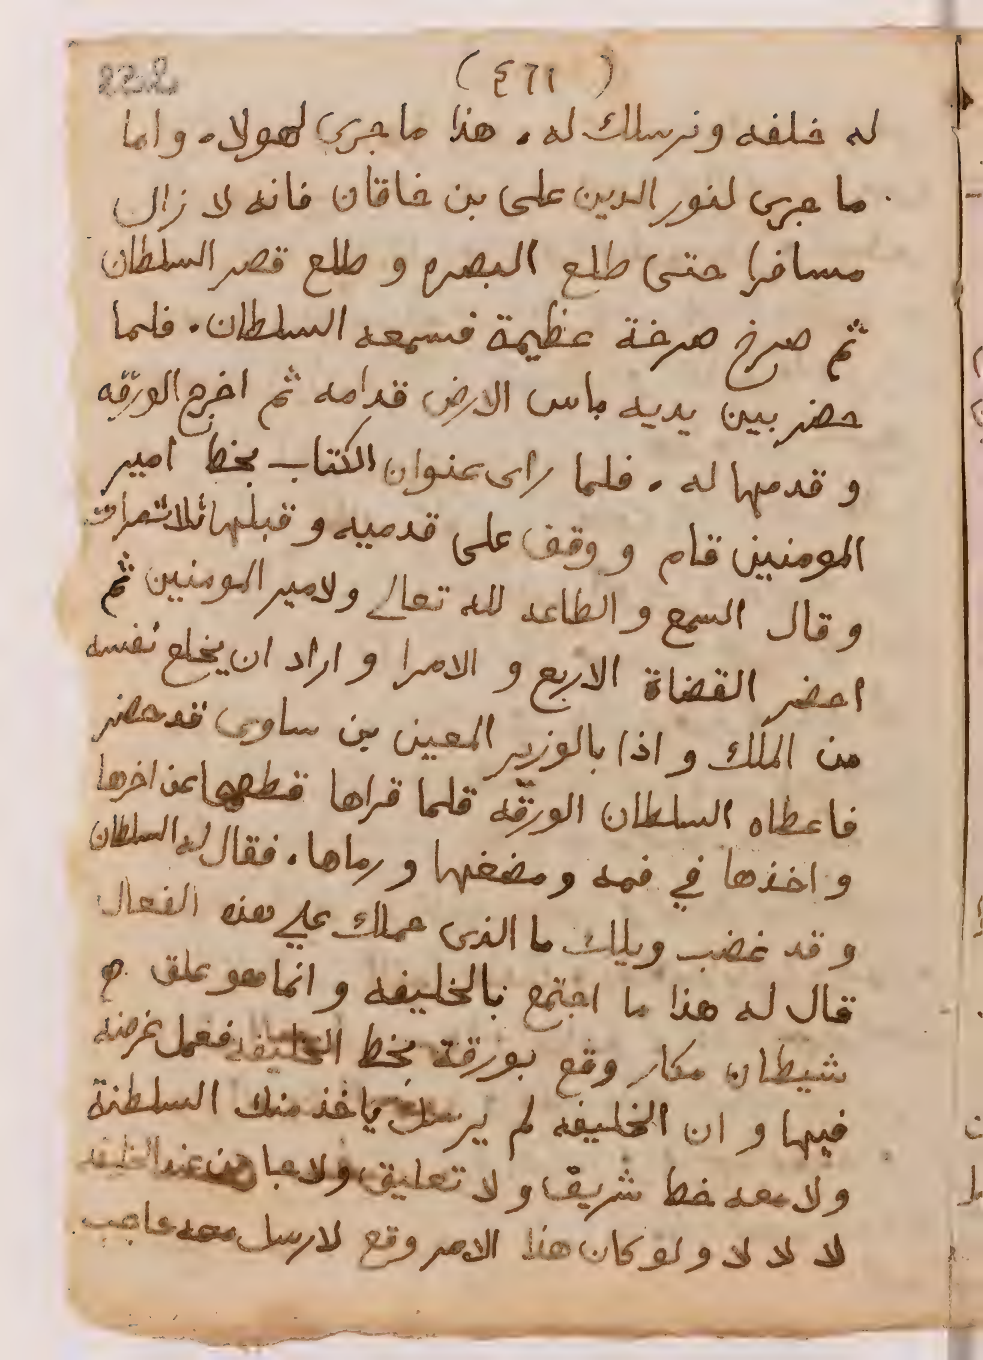 (٤٦١)
له خلفه ونرسلك له. هذا ما جرى لهولا. واما
ما جرى لنور الدين على بن خاقان فانه لا زال
مسافرا حتى طلع البصره و طلع قصر السلطان
ثم صرخ صرخة عظيمة فسمعه السلطان. فلما
حضر بين يديه باس الارض قدامه ثم اخرج الورقه
و قدمها له. فلما راى عنوان الكتاب بخط امير
المومنين قام و وقف على قدميه و قبلها ثلاث مرات
و قال السمع و الطاعه لله تعالى ولامير المومنين ثم
احضر القضاة الاربع و الامرا و اراد ان يخلع نفسه
من الملك و اذا بالوزير المعين بن ساوى قد حضر
فاعطاه السلطان الورقه فلما قراها قطعها عن اخرها
و اخذها في فمه و مضغها و رماها. فقال له السلطان
و قد غضب ويلك ما الذى حملك على هذه الفعال
قال له هذا ما اجتمع بالخليفه و انما هو علق
شيطان مكار وقع بورقة بخط الخليفه فعمل غرضه
فيها و ان الخليفه لم يرسله ياخذ منك السلطنة
ولا معه خط شريف و لا تعليق ولا جا من عند الخليفه
لا لا لا و لو كان هذا الامر وقع لارسل معه حاجب